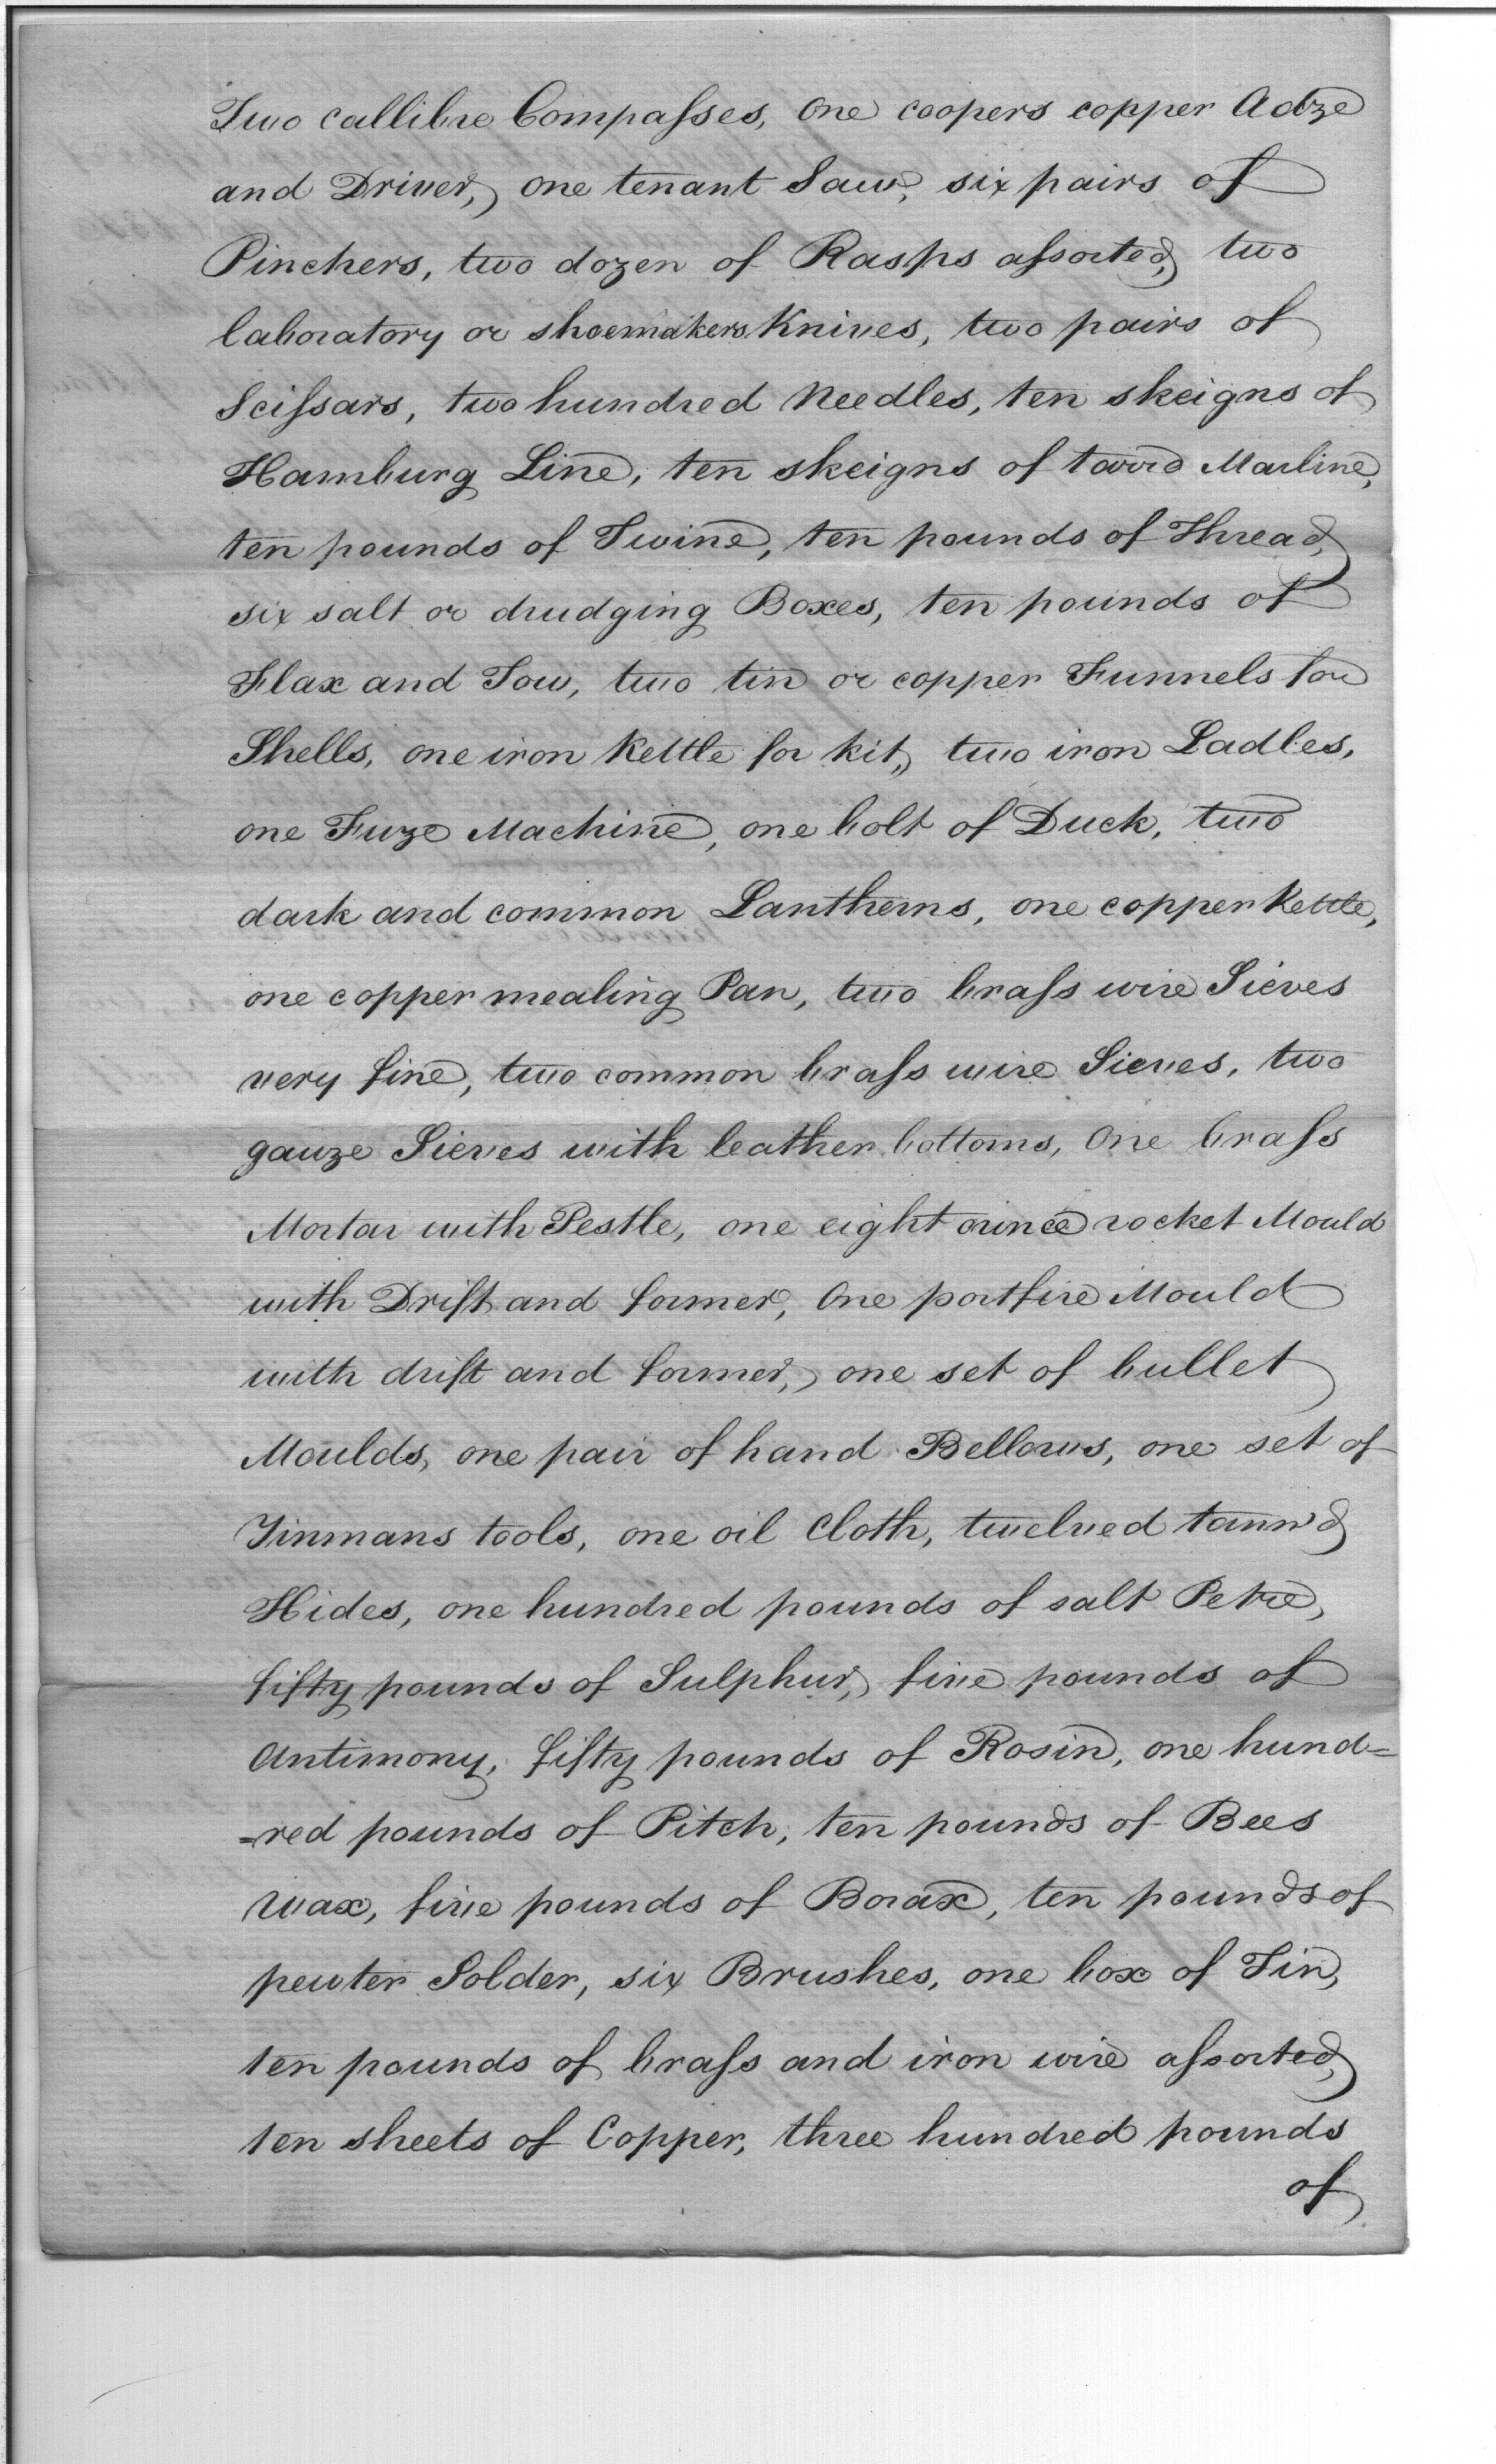 Two callibre Compasses, one coopers copper Adze
and Driver, one tenant Saw, six pairs of
Pinchers, two dozen of Rasps assorted, two
laboratory or shoemakers Knives, two pairs of
Scissars, two hundred Needles, ten skeigns of
Hamburg Line, ten skeigns of tarr'd Marline,
ten pounds of Twine, ten pounds of Thread,
six salt or drudging Boxes, ten pounds of
Flax and Tow, two tin or copper Funnels for
Shells, one iron Kettle for kit, two iron Ladles,
one Fuze Machine, one bolt of Duck, two
dark and common Lantherns, one copper Kettle,
one copper mealing Pan, two brass wire Sieves
very fine, two common brass wire Sieves, two
gauze Sieves with leather bottoms, One brass
Mortar with Pestle, one eight ounce rocket Mould
with Drift and former, One portfire Mould
with drift and former, one set of bullet
Moulds, one pair of hand Bellows, one set of
Tinmans tools, one oil Cloth, twelved tann'd
Hides, one hundred pounds of salt Petre,
fifty pounds of Sulphur, five pounds of
Antimony, fifty pounds of Rosin, one hund=
=red pounds of Pitch, ten pounds of Bees
wax, five pounds of Borax, ten pounds of
pewter Solder, six Brushes, one box of Tin,
ten pounds of brass and iron wire assorted,
ten sheets of Copper, three hundred pounds
of